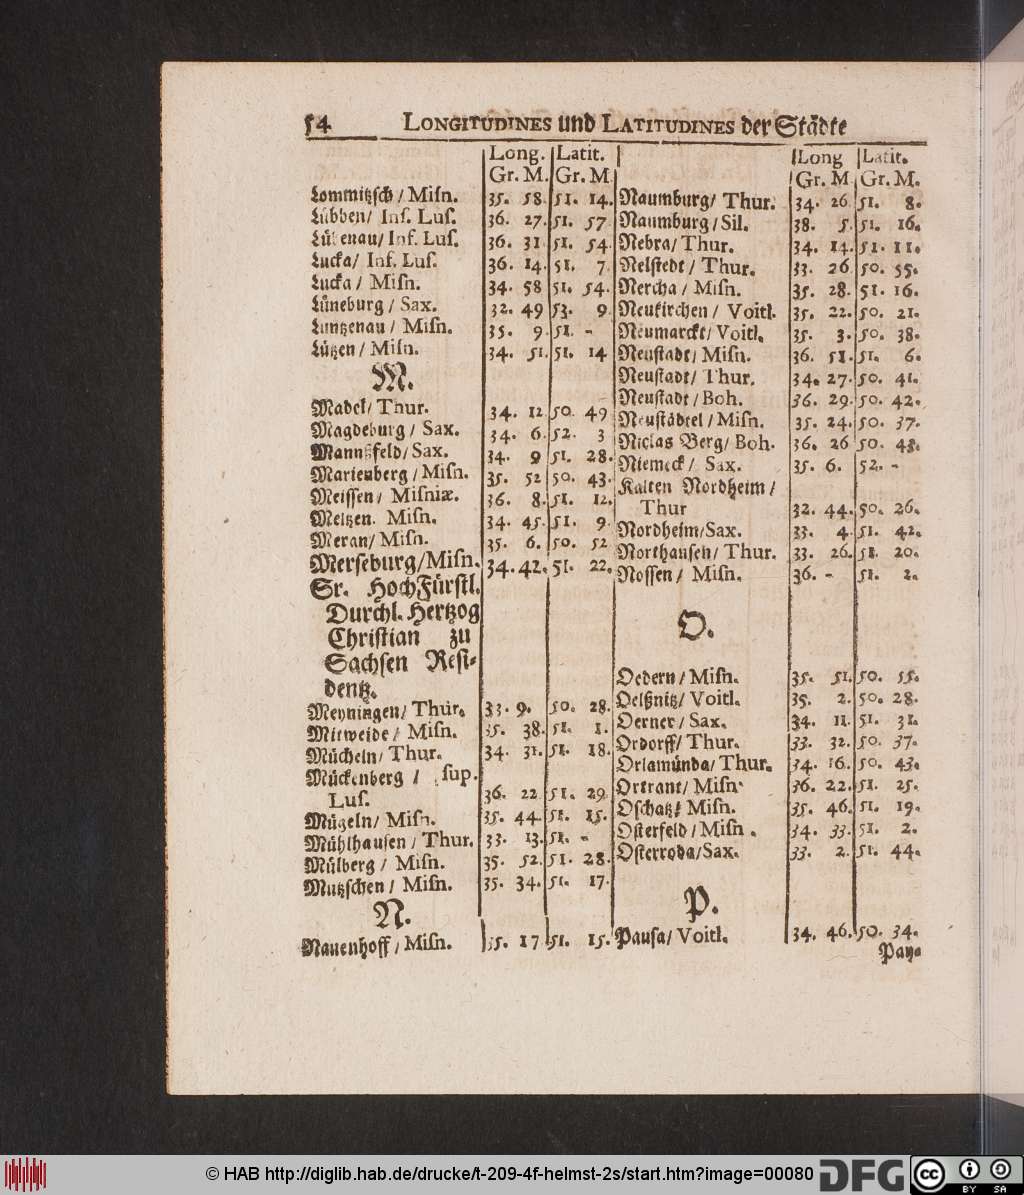 54 LONGITUDINES und LATITUDINES der Städte
Long. Latit.
Gr. M. Gr. M
Lommitzsch / Misn. 35. 58. 51. 14.
Lübben/ Inf. Lus. 36. 27. 51. 57
Lübenau/ Inf. Lus. 36. 31 51. 54.
Lucka/ Inf. Lus. 36. 14. 51. 7
Lucka / Misn. 34. 58 51. 54.
Lüneburg / Sax. 32. 49 53. 9
Luntzenau / Misn. 35. 9. 51. -
Lützen / Misn. 34. 51. 51. 14
M.
Madel/ Thur. 34. 12 50. 49
Magdeburg / Sax. 34. 6. 52. 3
Mannßfeld/ Sax. 34. 9 51. 28.
Marienberg / Misn. 35. 52 50. 43.
Meissen / Misniæ. 36. 8. 51. 12.
Meltzen. Misn. 34. 45. 51. 9
Meran/ Misn. 35. 6. 50. 52
Merseburg/Misn. 34. 42. 51. 22.
Sr. HochFürstl.
Durchl. Hertzog
Christian zu
Sachsen Resi-
dentz.
Meyningen/ Thur. 33. 9. 50. 28.
Mitweide / Misn. 35. 38. 51. 1.
Mücheln/ Thur. 34. 31. 51. 18.
Mückenberg / sup.
Lus. 36. 22 51. 29
Mügeln/ Misn. 35. 44. 51. 15.
Mühlhausen / Thur. 33. 13. 51. -
Mülberg / Misn. 35. 52. 51. 28.
Mutzschen / Misn. 35. 34. 51. 17.
N.
Nauenhoff / Misn. 35. 17 51. 15.
Long Latit.
Gr. M Gr. M.
Naumburg/ Thur. 34. 26 51. 8.
Naumburg / Sil. 38. 5. 51. 16.
Nebra/ Thur. 34. 14. 51. 11.
Nelstedt / Thur. 33. 26 50. 55.
Nercha / Misn. 35. 28. 51. 16.
Neukirchen / Voitl. 35. 22. 50. 21.
Neumarckt/ Voitl. 35. 3. 50. 38.
Neustadt/ Misn. 36. 51. 51. 6.
Neustadt/ Thur. 34. 27. 50. 41.
Neustadt / Boh. 36. 29. 50. 42.
Neustädtel / Misn. 35. 24. 50. 37.
Niclas Berg/ Boh. 36. 26 50. 48.
Niemeck / Sax. 35. 6. 52. -
Kalten Nordheim /
Thur 32. 44. 50. 26.
Nordheim/Sax. 33. 4. 51. 42.
Northausen/ Thur. 33. 26. 51. 20.
Nossen / Misn. 36. - 51. 2.
O.
Oedern / Misn. 35. 51. 50. 55.
Oelßnitz/ Voitl. 35. 2. 50. 28.
Oerner / Sax. 34. 11. 51. 31.
Ordorff/ Thur. 33. 32. 50. 37.
Orlamünda/ Thur. 34. 16. 50. 43.
Ortrant/ Misn. 36. 22. 51. 25.
Oschatz/ Misn. 35. 46. 51. 19.
Osterfeld / Misn . 34. 33. 51. 2.
Osterroda/Sax. 33. 2. 51. 44.
P.
Pausa/ Voitl. 34. 46. 50. 34.
Pay-
© HAB http://diglib.hab.de/drucke/t-209-4f-helmst-2s/start.htm?image=00080 DFG cc BY SA